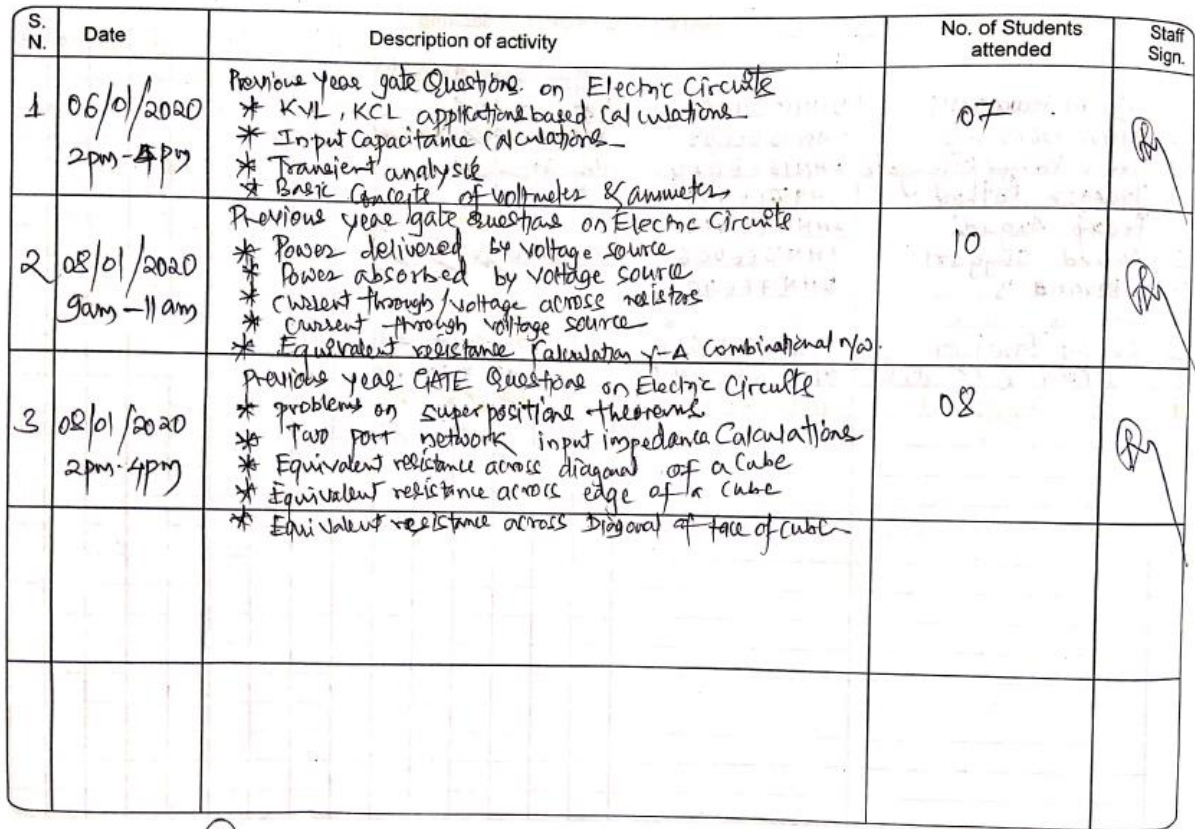 S. N. Date Description of activity No. of Students attended Staff Sign.
Previous year gate Questions on Electric Circuits
1 06/01/2020 * KVL, KCL applications based Calculations 07
* Input Capacitance Calculations
2pm-4pm * Transient analysis
* Basic Concepts of voltmeter & ammeter
Previous year gate Questions on Electric Circuits
* Power delivered by voltage source 10
2 08/01/2020 * Power absorbed by voltage source
9am-11am * Current through/voltage across resistors
* Current through voltage source
* Equivalent resistance Calculation Y-Δ Combinational n/w.
Previous year GATE Questions on Electric Circuits
* problems on superpositions theorems 08
3 08/01/2020 * Two port network input impedance Calculations
2pm-4pm * Equivalent resistance across diagonal of a Cube
* Equivalent resistance across edge of a Cube
* Equivalent resistance across Diagonal of face of cube